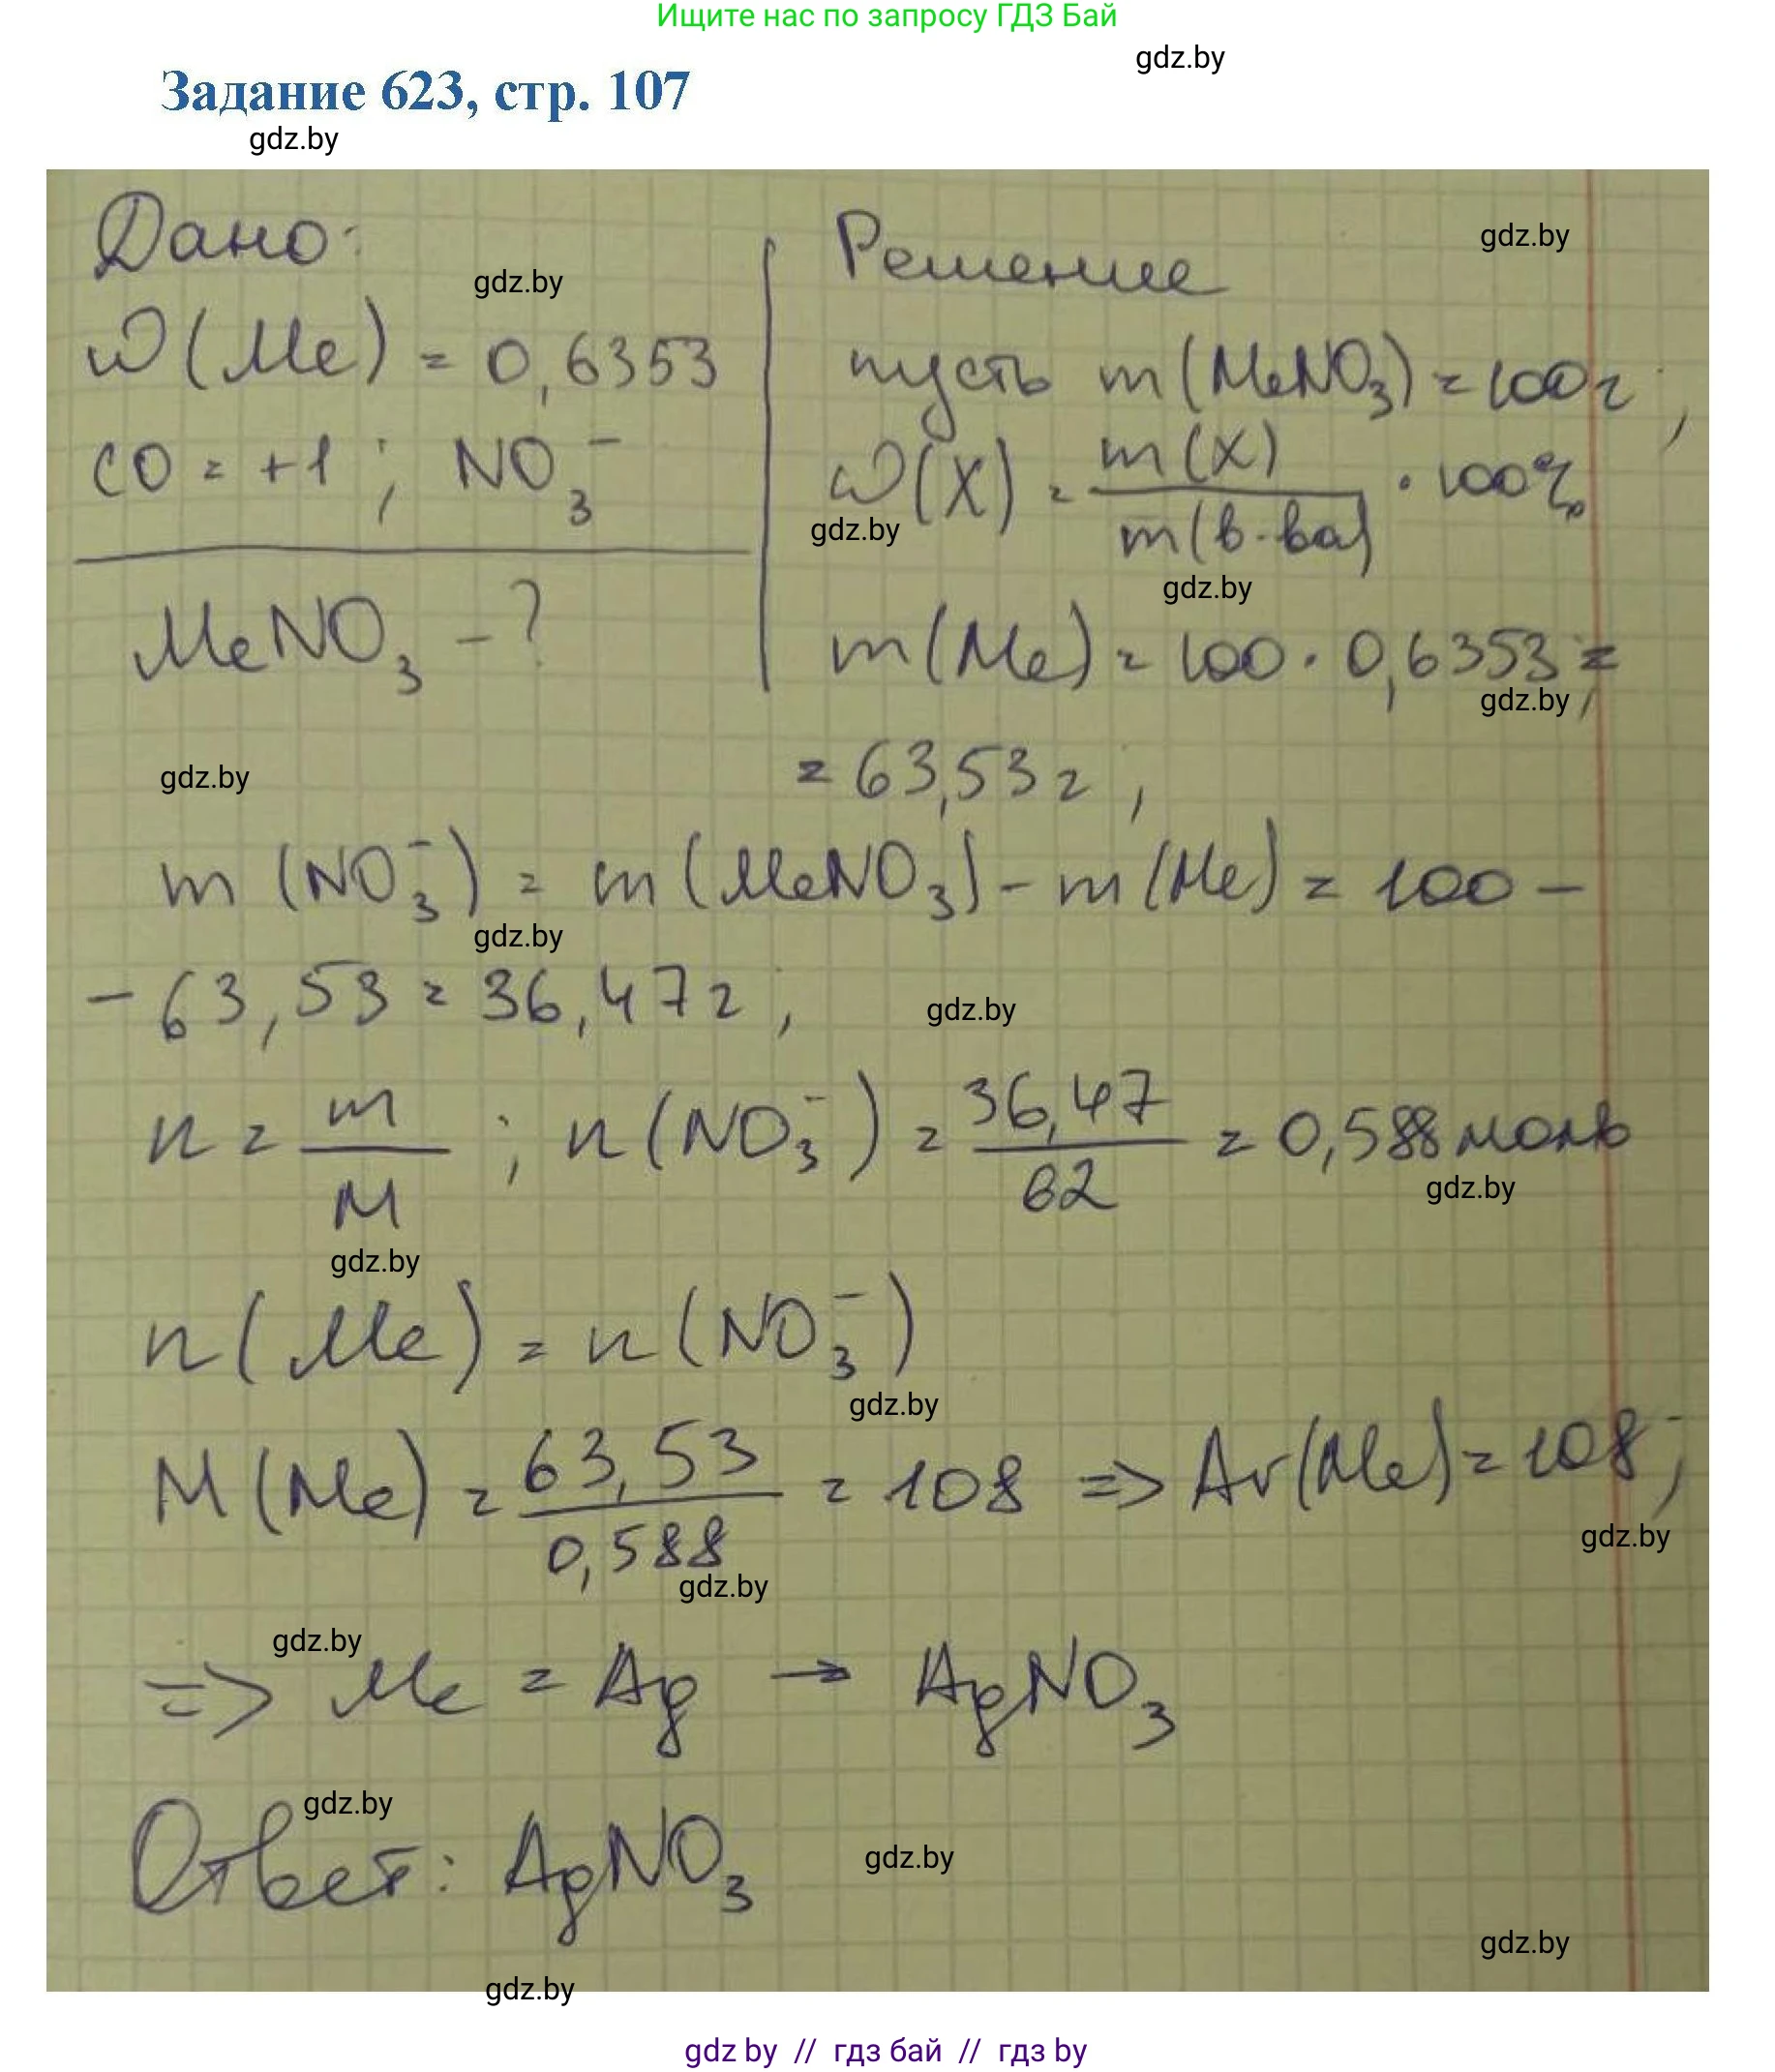 Ищите нас по запросу ГДЗ Бай
gdz.by
Задание 623, стр. 107
gdz.by
Дано:
gdz.by
ω(Me) = 0,6353
CO = +1; NO₃⁻
MeNO₃ - ?
Решение
gdz.by
пусть m(MeNO₃) = 100г;
ω(X) = m(X) / m(в-ва) · 100%
gdz.by
gdz.by
m(Me) = 100 · 0,6353 =
gdz.by
= 63,53г;
gdz.by
m(NO₃⁻) = m(MeNO₃) - m(Me) = 100 -
gdz.by
- 63,53 = 36,47г;
gdz.by
n = m / M; n(NO₃⁻) = 36,47 / 62 = 0,588 моль
gdz.by
gdz.by
n(Me) = n(NO₃⁻)
gdz.by
M(Me) = 63,53 / 0,588 = 108 => Ar(Me) = 108;
gdz.by
gdz.by
gdz.by
=> Me = Ag → AgNO₃
gdz.by
Ответ: AgNO₃
gdz.by
gdz.by
gdz.by
gdz by // гдз бай // гдз by